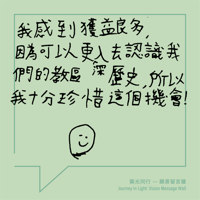 我感到獲益良多，
因為可以更深入去認識我
們的教區歷史，所以
我十分珍惜這個機會！
Journey in Light: Vision Message Wall